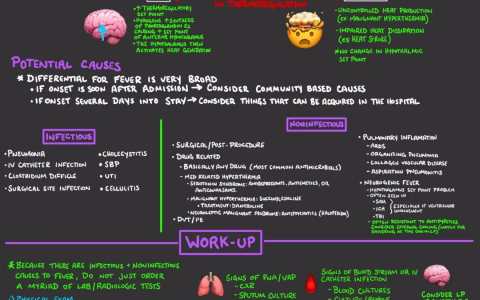 IN THERMOREGULATION
↑ THERMOREGULATORY
SET POINT
• PYROGENS ↑ SYNTHESIS
OF PROSTAGLANDIN E2
CAUSING ↑ SET POINT
OF ANTERIOR HYPOTHALAMUS
• THE HYPOTHALAMUS THEN
ACTIVATES HEAT GENERATION
- UNCONTROLLED HEAT PRODUCTION
(EX: MALIGNANT HYPERTHERMIA)
- IMPAIRED HEAT DISSIPATION
(EX: HEAT STROKE)
NO CHANGE IN HYPOTHALMIC
SET POINT
POTENTIAL CAUSES
* DIFFERENTIAL FOR FEVER IS VERY BROAD
• IF ONSET IS SOON AFTER ADMISSION → CONSIDER COMMUNITY BASED CAUSES
• IF ONSET SEVERAL DAYS INTO STAY → CONSIDER THINGS THAT CAN BE ACQUIRED IN THE HOSPITAL
INFECTIOUS
• PNEUMONIA
• IV CATHETER INFECTION
• CLOSTRIDIUM DIFFICILE
• SURGICAL SITE INFECTION
• CHOLECYSTITIS
• SBP
• UTI
• CELLULITIS
NONINFECTIOUS
• SURGICAL/POST-PROCEDURE
• DRUG RELATED
- BASICALLY ANY DRUG (MOST COMMON ANTIMICROBIALS)
- MED RELATED HYPERTHERMIA
- SEROTONIN SYNDROME: ANTIDEPRESSANTS, ANTIEMETICS, OR
ANTICONVULSANTS.
- MALIGNANT HYPERTHERMIA: SUCCINYLCHOLINE
• TREATMENT: DANTROLENE
• NEUROLEPTIC MALIGNANT SYNDROME: ANTIPSYCHOTICS (HALOPERIDOL)
• DVT/PE
• PULMONARY INFLAMATION
- ARDS
- ORGANIZING PNEUMONIA
- COLLAGEN VASCULAR DISEASE
- ASPIRATION PNEUMONITIS
• NEUROGENIC FEVER
- HYPOTHALAMUS SET POINT PROBLEM
- OFTEN SEEN IN
- SAH
- ICH
- TBI
ESPECIALLY IF VENTRICULAR
INVOLVEMENT
WORK-UP
* BECAUSE THERE ARE INFECTIOUS + NONINFECTIOUS
CAUSES TO FEVER, DO NOT JUST ORDER
A MYRIAD OF LAB/RADIOLOGIC TESTS
1) PHYSICAL EXAM
SIGNS OF PNA/VAP
- CXR
- SPUTUM CULTURE
SIGNS OF BLOOD STREAM OR IV
CATHETER INFECTION
- BLOOD CULTURES
CONSIDER LP